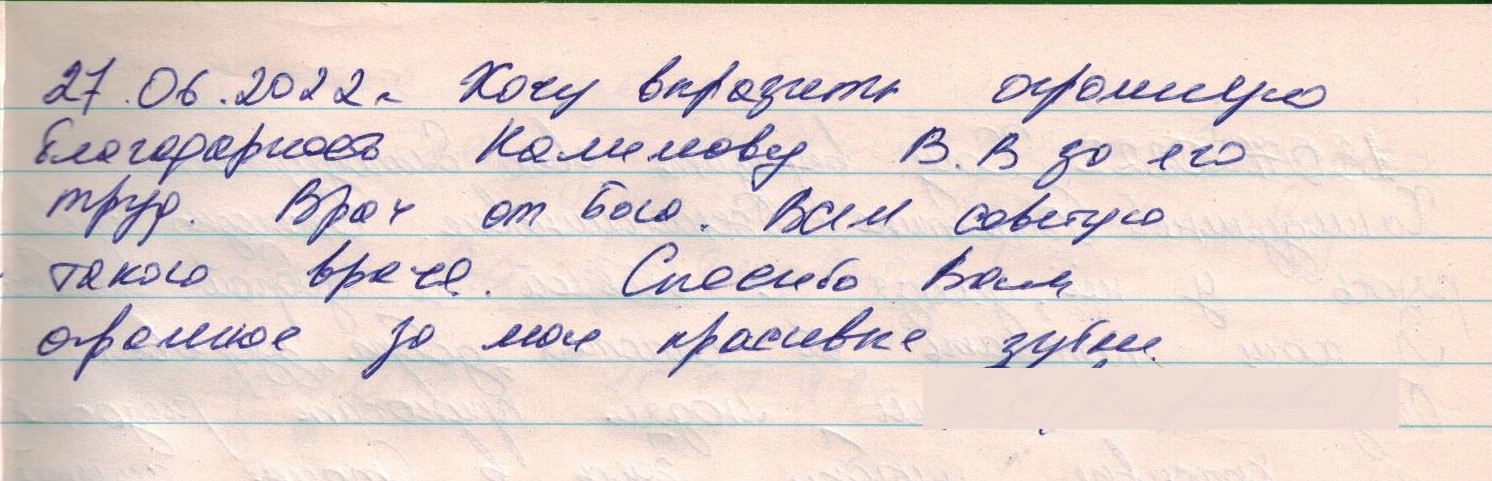 27.06.2022г Хочу выразить огромную
благодарность Калимову В.В за его
труд. Врач от Бога. Всем советую
такого врача. Спасибо Вам
огромное за мои красивые зубки.